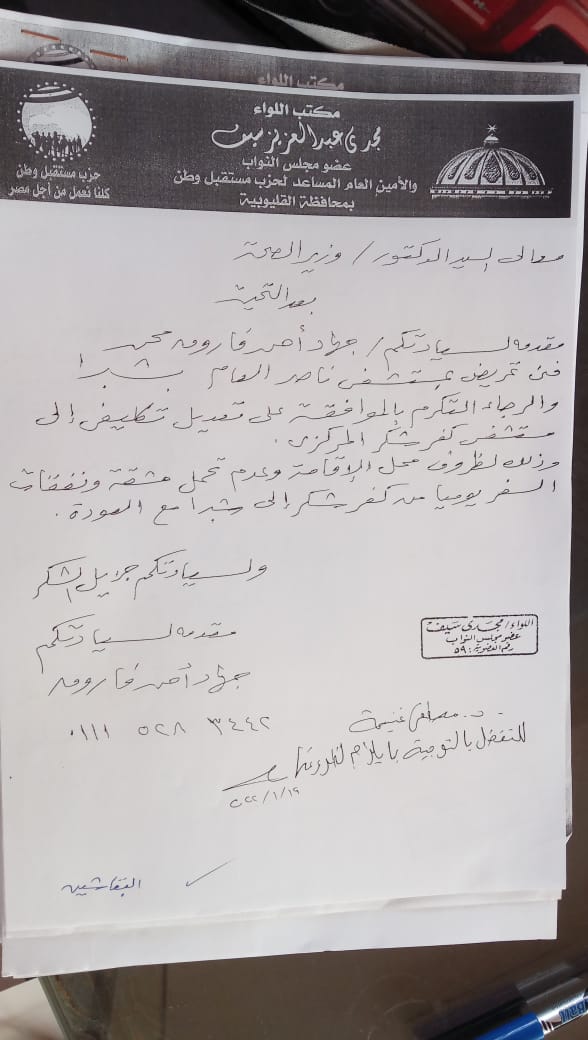 مكتب اللواء
مكتب اللواء
مجدى عبد العزيز سيف
عضو مجلس النواب
والأمين العام المساعد لحزب مستقبل وطن
بمحافظة القليوبية
حزب مستقبل وطن
كلنا نعمل من أجل مصر
معالى السيد الدكتور / وزير الصحة
بعد التحية
مقدمه لسيادتكم / جهاد أحمد فاروق
فنى تمريض بمستشفى ناصر العام بشبرا
والرجاء التكرم بالموافقة على تعديل تكليفى إلى
مستشفى كفر شكر المركزى .
وذلك لظروف محل الإقامة وعدم تحمل مشقة ونفقات
السفر يوميا من كفر شكر إلى شبرا مع العودة .
ولسيادتكم جزيل الشكر
مقدمه لسيادتكم
جهاد أحمد فاروق
٠١١١ ٥٢٨ ٣٤٤٢
اللواء / مجدى سيف
عضو مجلس النواب
رقم العضوية : ٥٩
د. مصطفى غنيمة
للتفضل بالتوجية